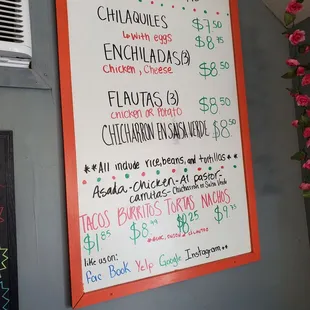 CHILAQUILES $7.50
with eggs $8.75
ENCHILADAS(3)
chicken, cheese $8.50
FLAUTAS (3) $8.50
chicken or Potato
CHICHARRON EN SALSA VERDE $8.50
**All include rice, beans, and tortillas*
Asada-Chicken-Al pastor-
carnitas-Chicharron en Salsa Verde
TACOS BURRITOS TORTAS NACHOS
$1.85 $8.50 $8.25 $9.75
like us on:
Face Book Yelp Google Instagram**